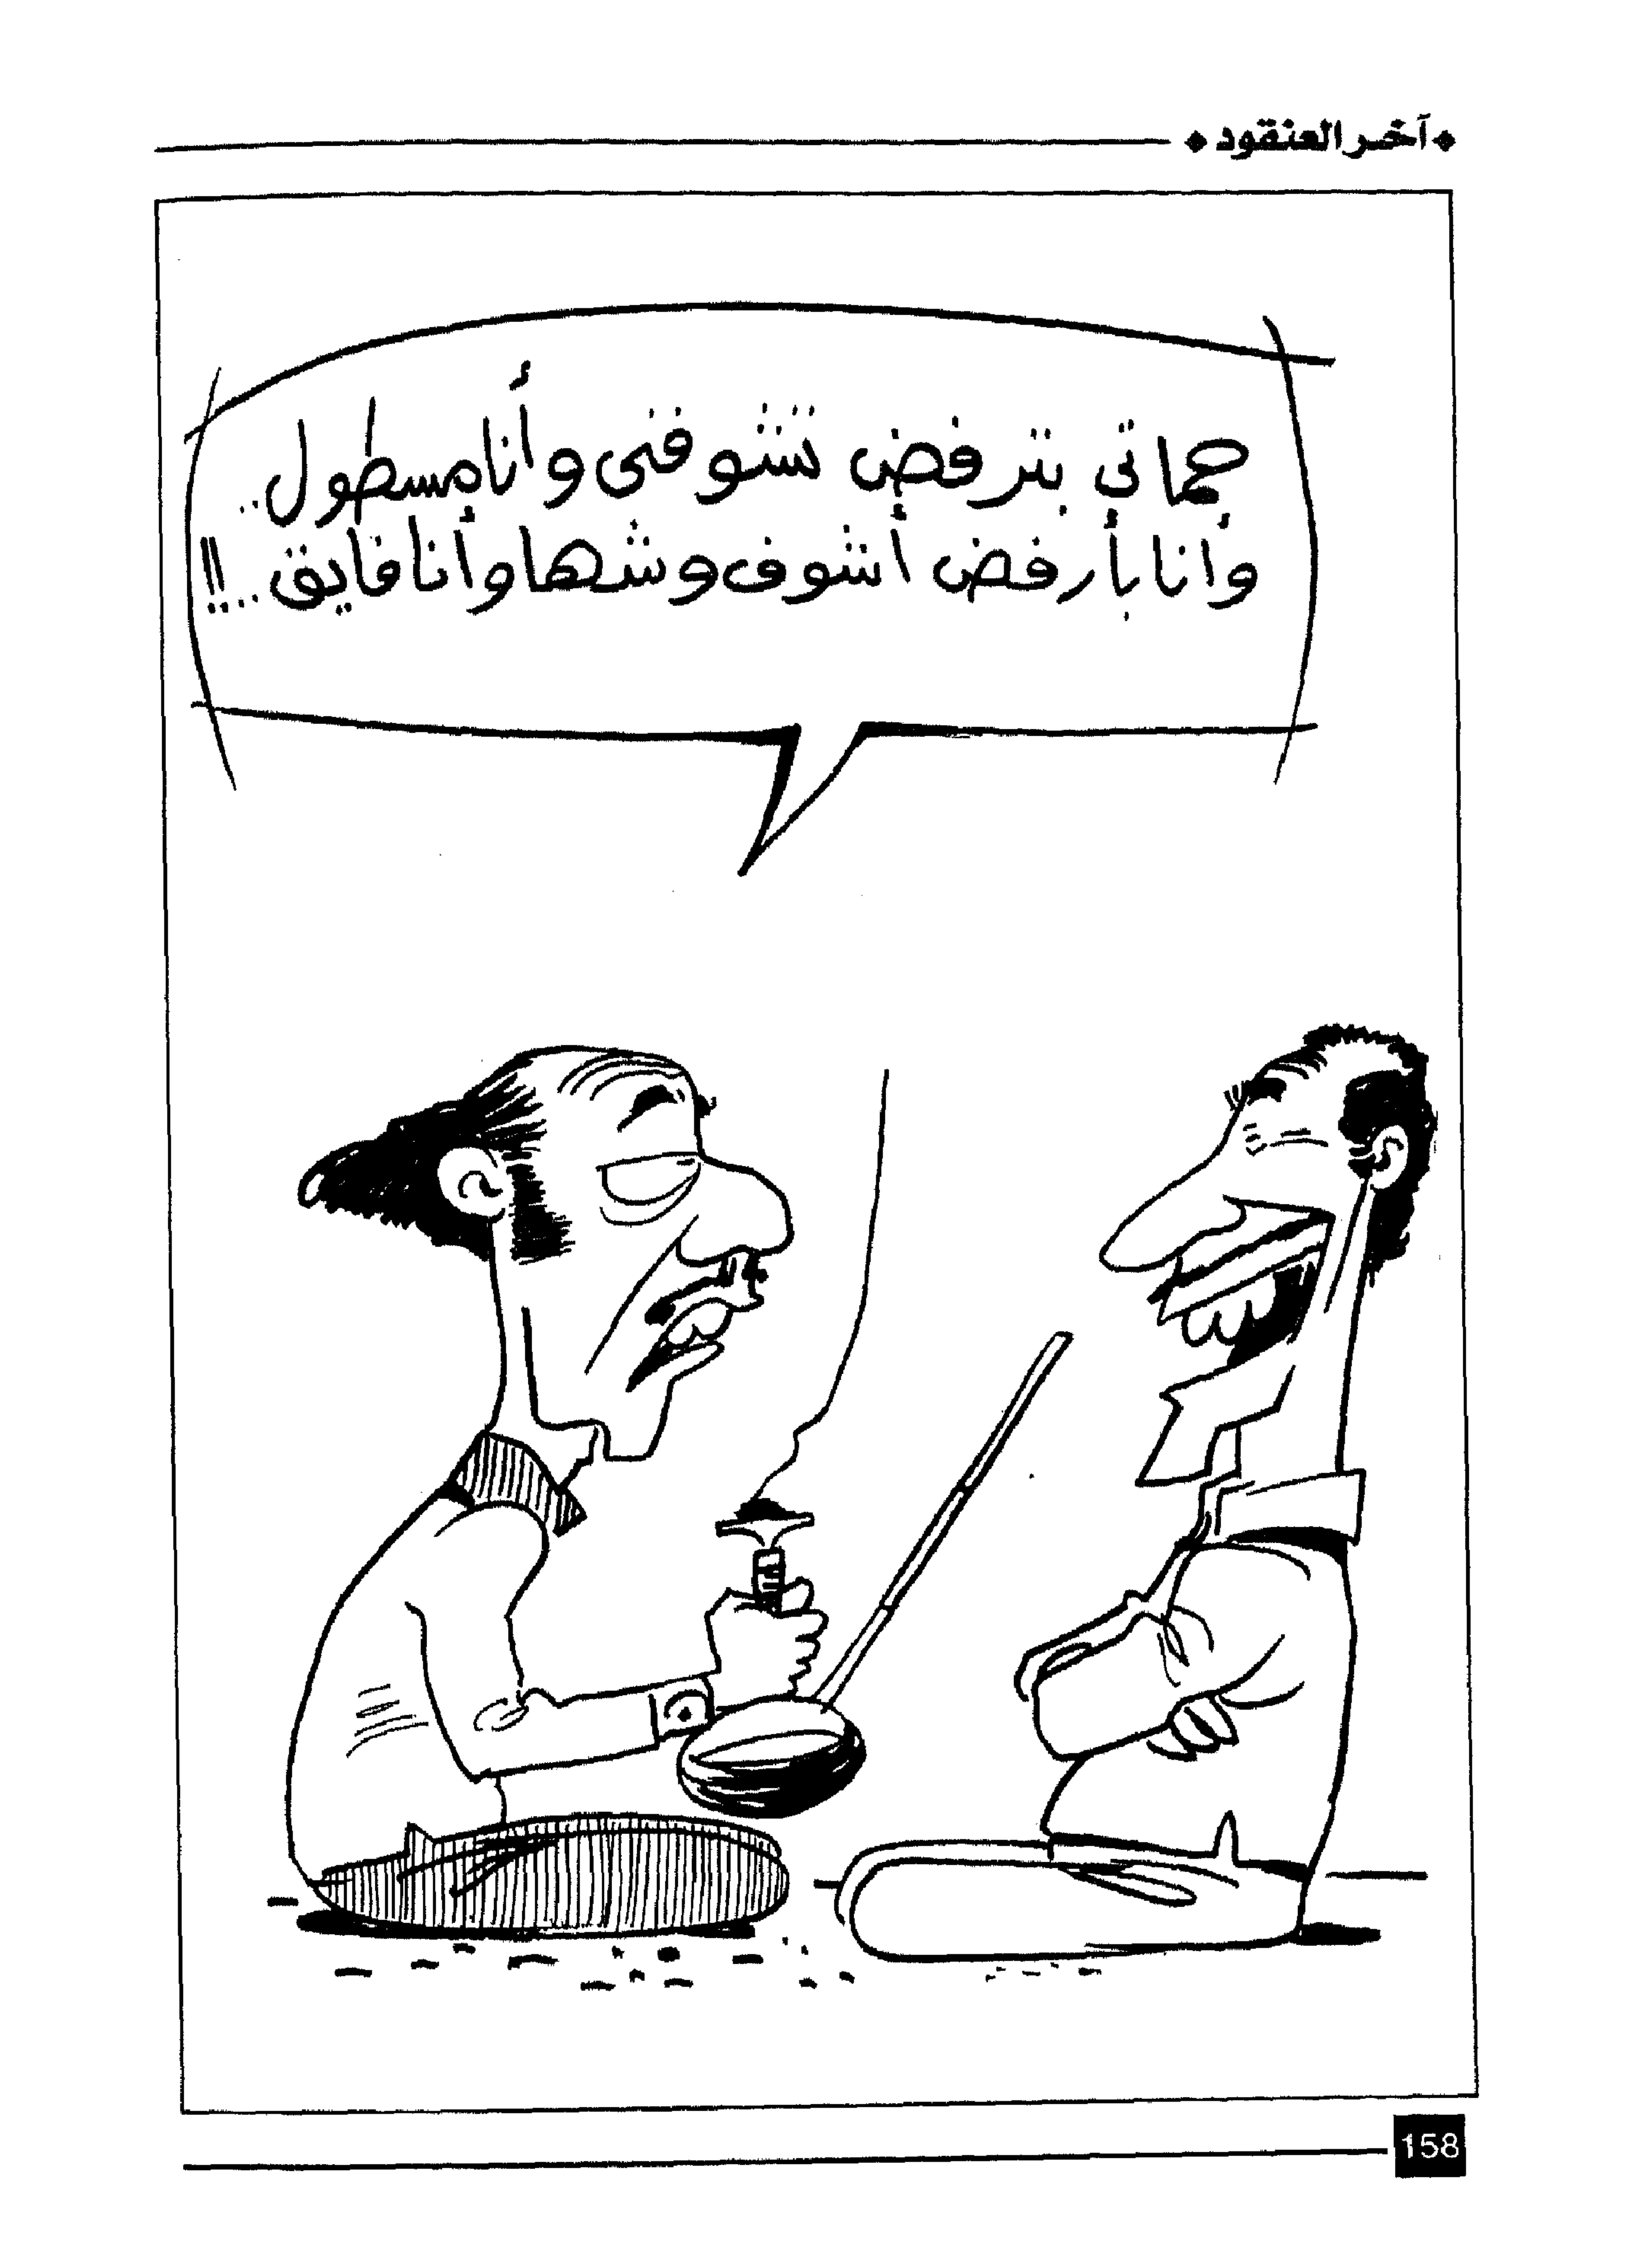 ❖ آخر العنقود ❖
حماتي بترفض تشوفنى وأنا مسطول..
وأنا بأرفض أشوف وشها وأنا فايق..!!
158